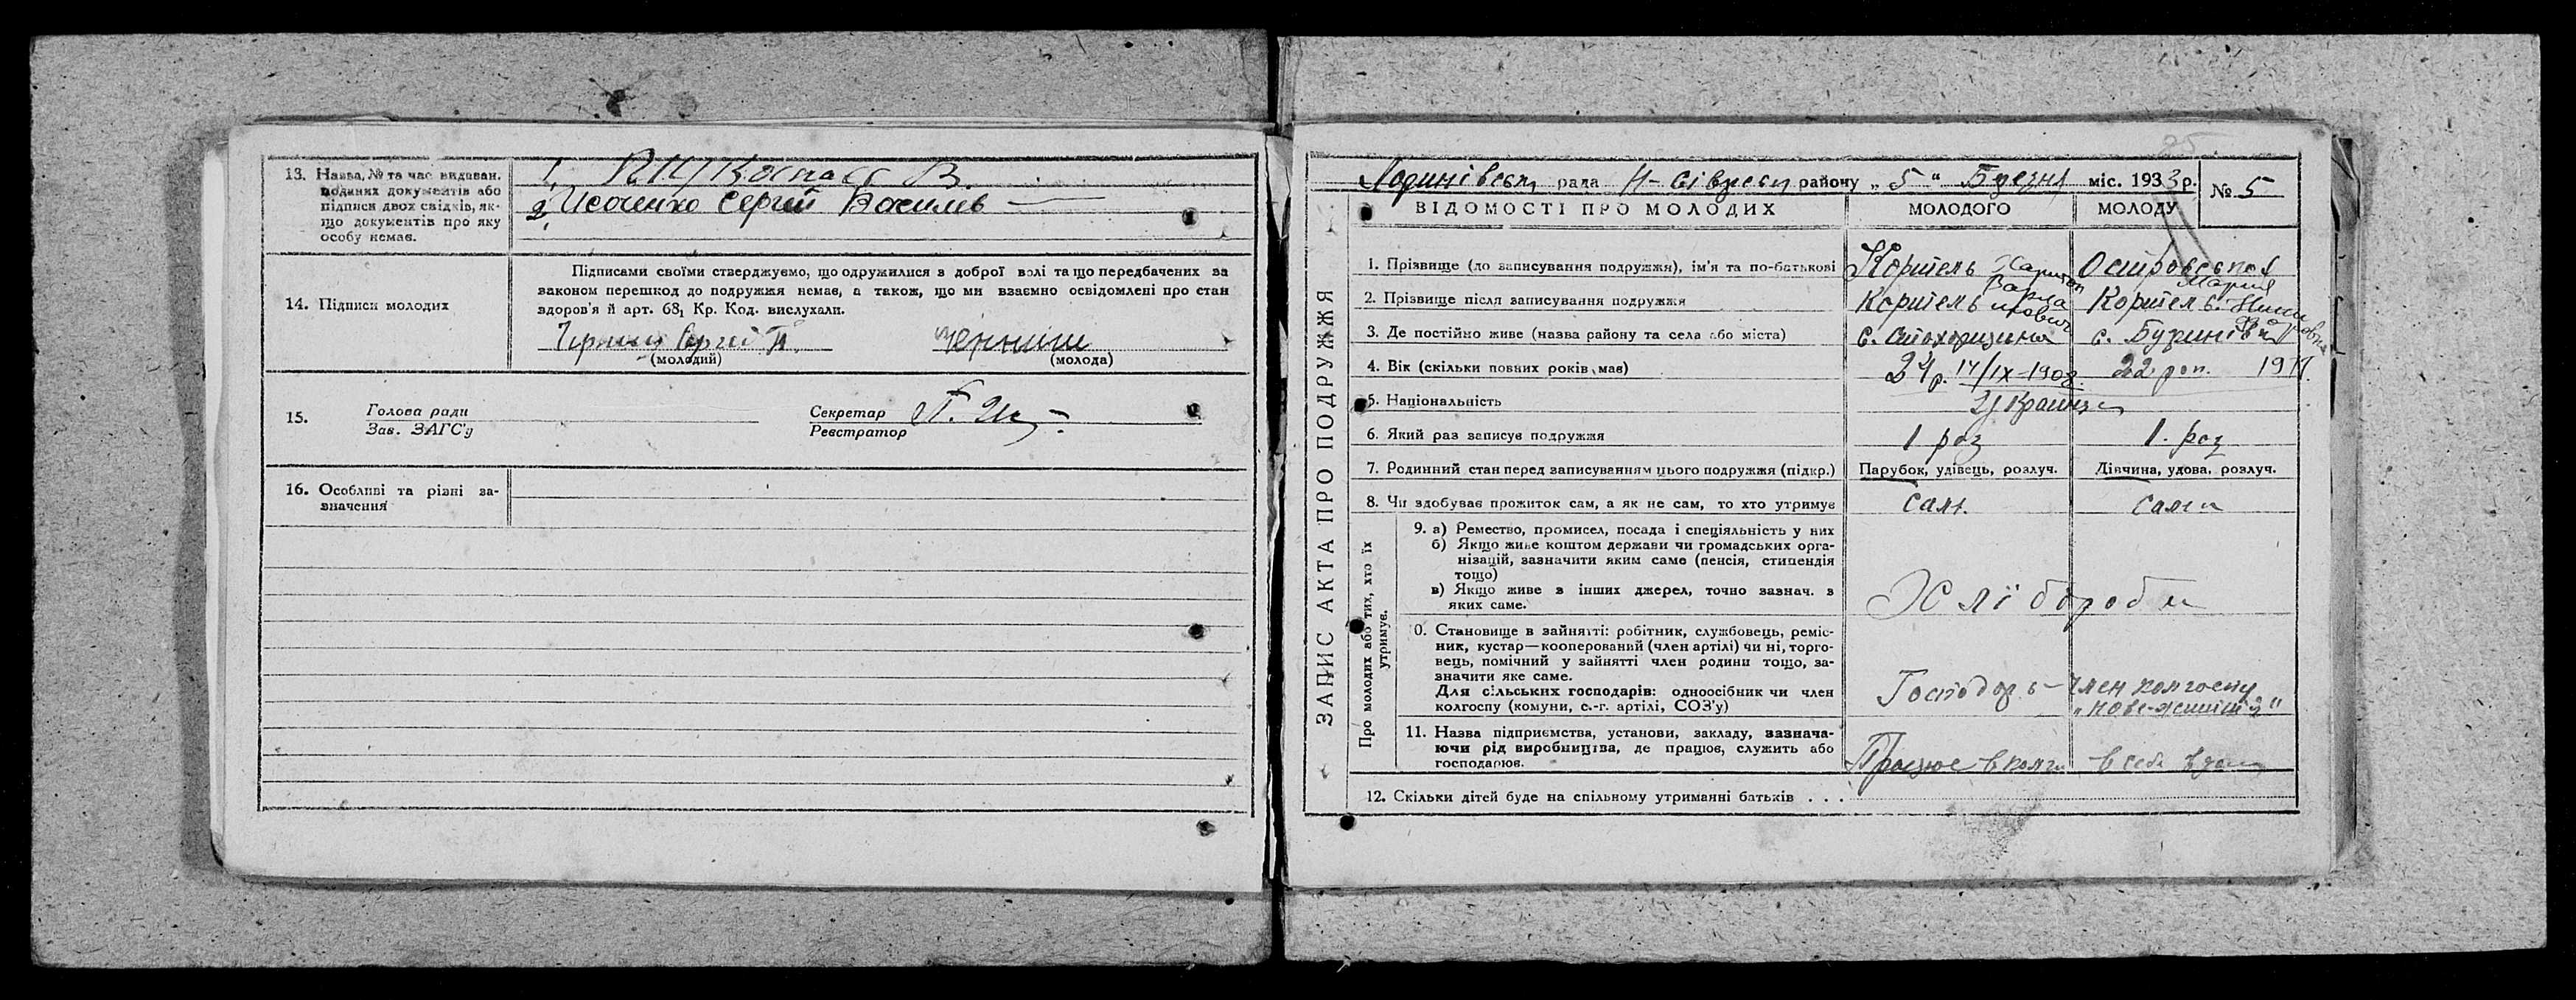 13. Назва, № та час видаван. поданих документів або підписи двох свідків, якщо документів про яку особу немає.
1.
2. Исаченко Сергій Василів
14. Підписи молодих
Підписами своїми стверджуємо, що одружилися з доброї волі та що передбачених за
законом перешкод до подружжя немає, а також, що ми взаємно освідомлені про стан
здоров'я й арт. 68₁ Кр. Код. вислухали.
Сергій П.
(молодий)
(молода)
15.
Голова ради
Зав. ЗАГС'у
Секретар
Реєстратор
16. Особливі та різні за-
значення
25
рада Н-Сіверськ району „5“ Березня міс. 1933 р.
№ 5
ВІДОМОСТІ ПРО МОЛОДИХ
МОЛОДОГО
МОЛОДУ
ЗАПИС АКТА ПРО ПОДРУЖЖЯ
1. Прізвище (до записування подружжя), ім'я та по-батькові
Коритель Харитон
Островська Мария
2. Прізвище після записування подружжя
Коритель
Коритель
3. Де постійно живе (назва району та села або міста)
с.
с. Буринівка
4. Вік (скільки повних років має)
24 р. 17/IX-1908
22 рок. 1911
5. Національність
Українц
6. Який раз записує подружжя
1 раз
1. раз
7. Родинний стан перед записуванням цього подружжя (підкр.)
Парубок, удівець, розлуч.
Дівчина, удова, розлуч.
8. Чи здобуває прожиток сам, а як не сам, то хто утримує
сам.
сама
Про молодих або тих, хто їх
утримує.
9. а) Ремество, промисел, посада і спеціяльність у них
б) Якщо живе коштом держави чи громадських орга-
нізацій, зазначити яким саме (пенсія, стипендія
тощо)
в) Якщо живе з інших джерел, точно зазнач. з
яких саме.
Хлібороби
0. Становище в зайнятті: робітник, службовець, реміс-
ник, кустар—кооперований (член артілі) чи ні, торго-
вець, помічний у зайнятті член родини тощо, за-
значити яке саме.
Для сільських господарів: одноосібник чи член
колгоспу (комуни, с.-г. артілі, СОЗ'у)
Господарь – член колгоспу
11. Назва підприємства, установи, закладу, зазнача-
ючи рід виробництва, де працює, служить або
господарює.
Працює в колг.
в себе вдома
12. Скільки дітей буде на спільному утриманні батьків . . .